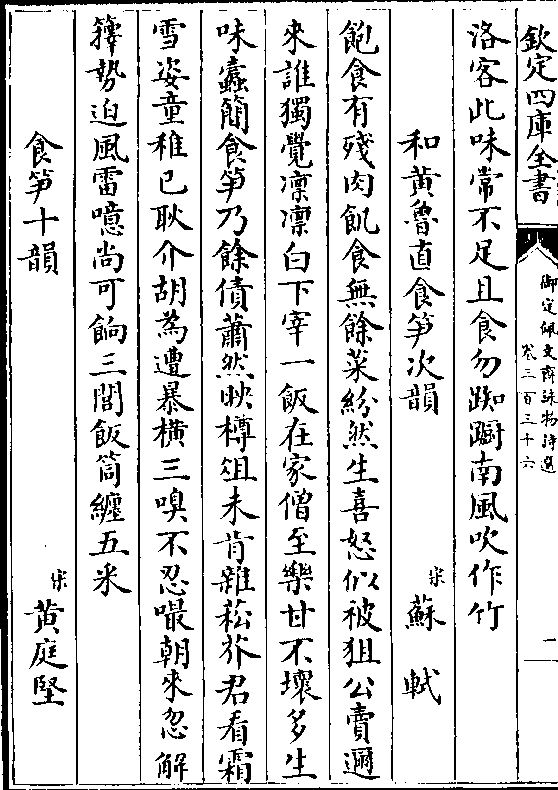 欽定四庫全書
御定佩文齋詠物詩選
卷三百三十六
一
洛客此味常不足且食勿踟躕南風吹作竹
和黃魯直食笋次韻
宋
蘇軾
飽食有殘肉飢食無餘菜紛然生喜怒似被狙公賣邇
來誰獨覺凛凛白下宰一飯在家僧至樂甘不壞多生
味蠹簡食笋乃餘債蕭然映樽俎未肯雜菘芥君看霜
雪姿童稚已耿介胡為遭暴橫三嗅不忍嘬朝來忽解
籜勢迫風雷噫尚可餉三閭飯筒纏五采
食笋十韻
宋
黃庭堅